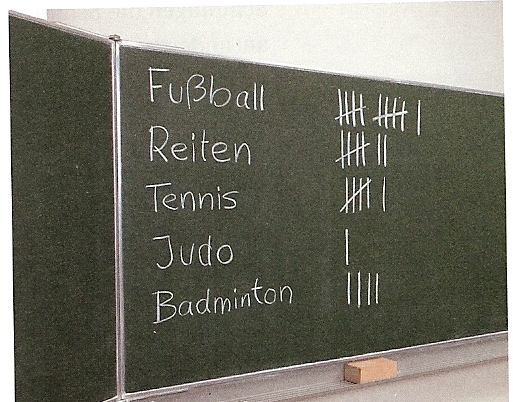 Fußball 𝍸 𝍸 |
Reiten 𝍸 ||
Tennis 𝍸 |
Judo |
Badminton ||||